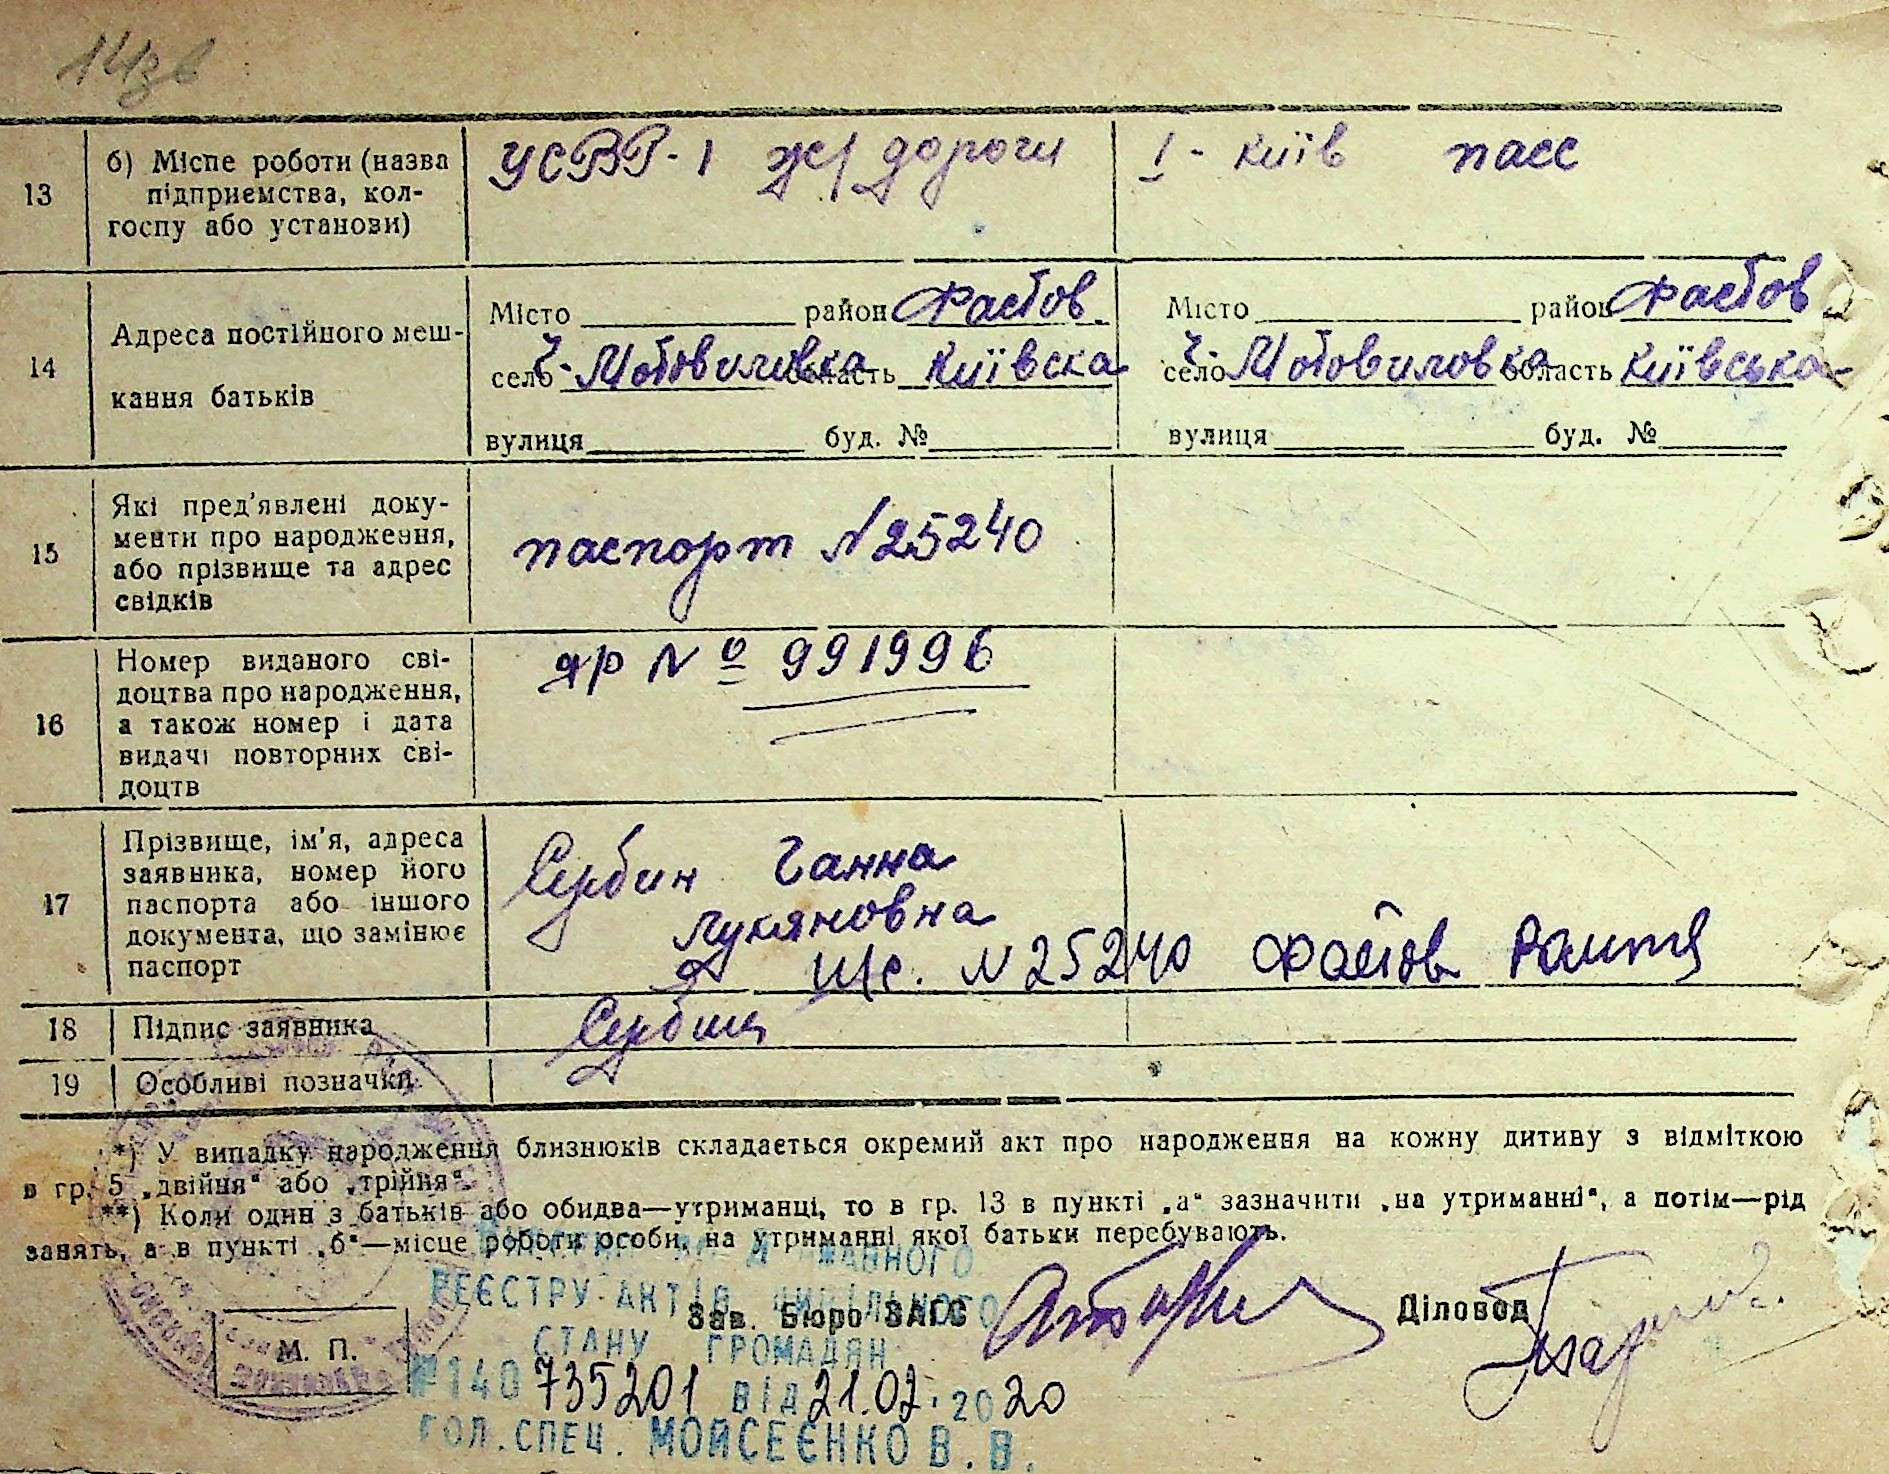 14зв
13
б) Місце роботи (назва
підприємства, кол-
госпу або установи)
УСВР-1 ж/дороги
1- Київ пасс
14
Адреса постійного меш-
кання батьків
Місто район Фастов
село Ч-Мотовиловка область Київска
вулиця буд. №
Місто район Фастов
село Ч-Мотовиловка область Київська
вулиця буд. №
15
Які пред'явлені доку-
менти про народження,
або прізвище та адрес
свідків
паспорт N25240
16
Номер виданого сві-
доцтва про народження,
а також номер і дата
видачі повторних сві-
доцтв
яр № 991996
17
Прізвище, ім'я, адреса
заявника, номер його
паспорта або іншого
документа, що замінює
паспорт
Сербин Ганна
Лукяновна
N25240 Фастов
18
Підпис заявника
Сербин
19
Особливі позначки
*) У випадку народження близнюків складається окремий акт про народження на кожну дитиву з відміткою
в гр. 5 „двійня" або „трійня".
**) Коли один з батьків або обидва—утриманці, то в гр. 13 в пункті „а" зазначити „на утриманні", а потім—рід
занять, а в пункті „б"—місце роботи особи, на утриманні якої батьки перебувають.
ДЕРЖАВНОГО
РЕЄСТРУ АКТІВ ЦИВІЛЬНОГО
Зав. Бюро ЗАГС
Діловод
СТАНУ ГРОМАДЯН
М. П.
№140 735201 від 21.02.2020
ГОЛ.СПЕЦ. МОЙСЕЄНКО В.В.